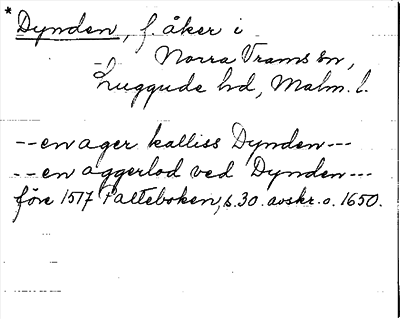 * Dynden, f. åker i
Norra Vrams sn,
Luggude hd, Malm. l.
-- en ager kalliss Dynden ---
-- en aggerlod ved Dynden ---
före 1517 Palteboken, s. 30. avskr. o. 1650.